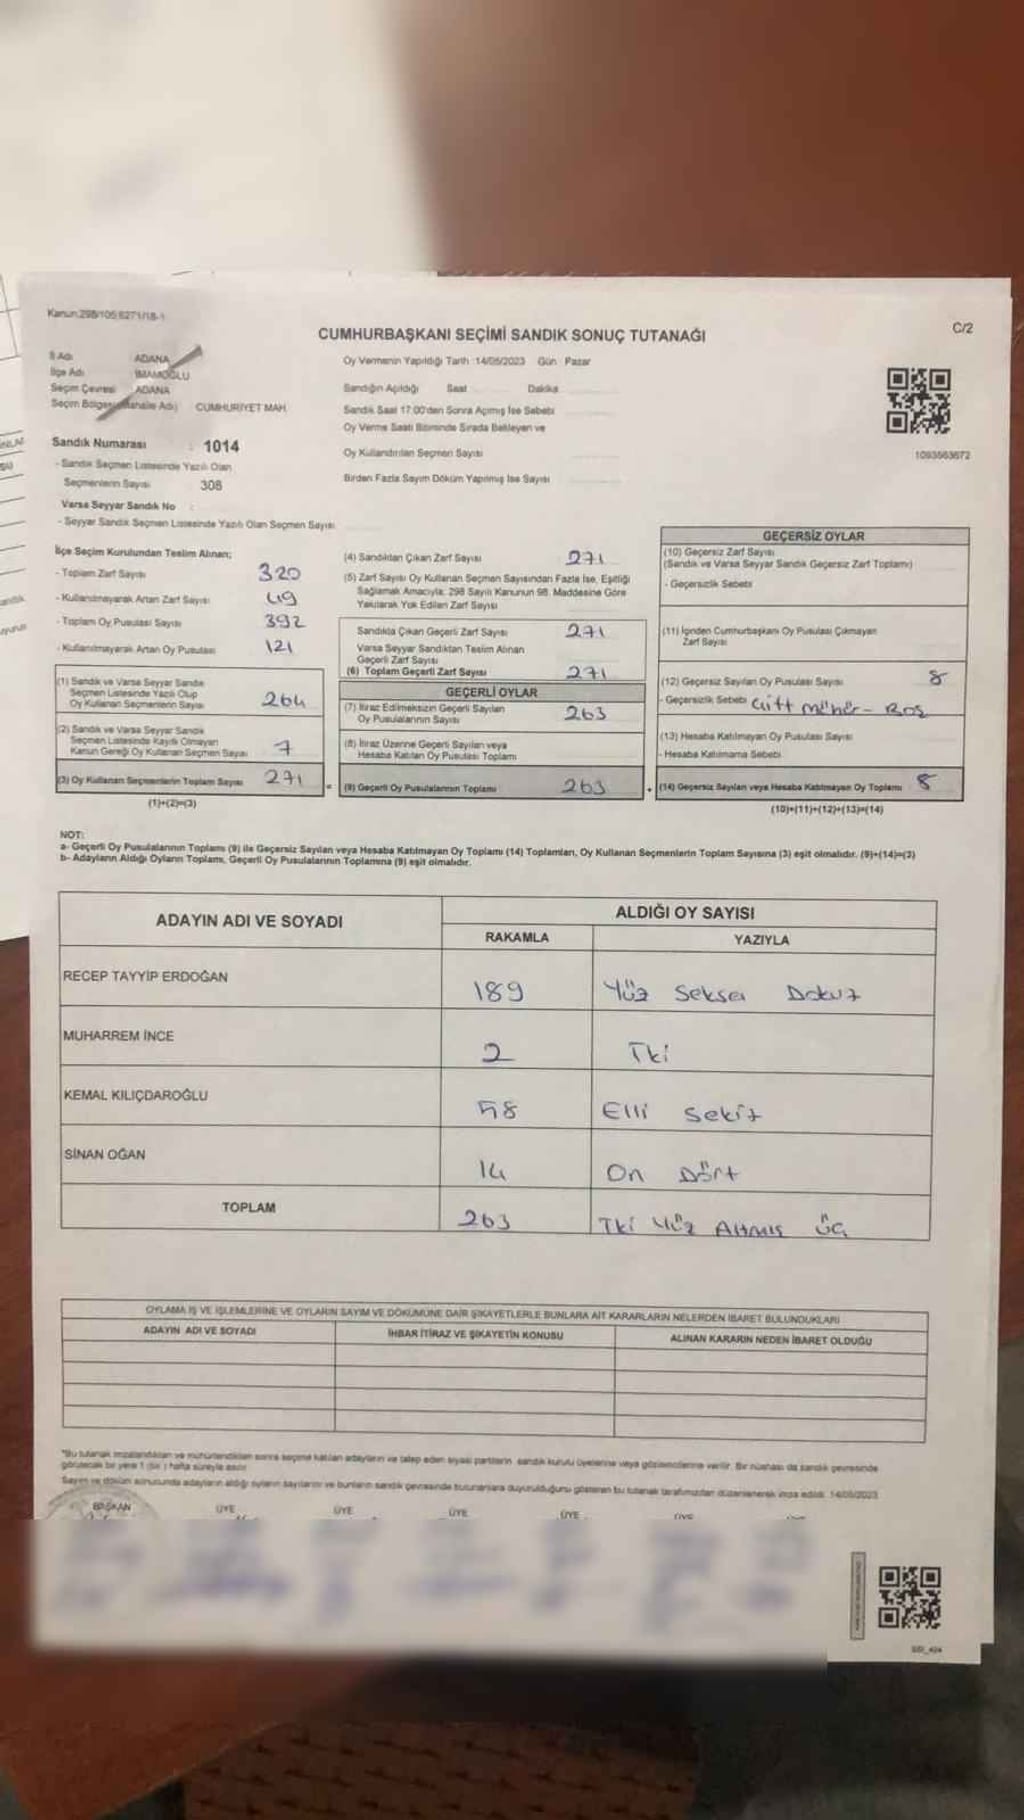 Kanun:298/105;6271/18-1
CUMHURBAŞKANI SEÇİMİ SANDIK SONUÇ TUTANAĞI
C/2
İl Adı ADANA
İlçe Adı İMAMOĞLU
Seçim Çevresi ADANA
Seçim Bölgesi (Mahalle Adı) CUMHURİYET MAH.
Oy Vermenin Yapıldığı Tarih :14/05/2023 Gün Pazar
Sandığın Açıldığı Saat Dakika
Sandık Saat 17:00'den Sonra Açılmış İse Sebebi
Oy Verme Saati Bitiminde Sırada Bekleyen ve
Oy Kullandırılan Seçmen Sayısı
Birden Fazla Sayım Döküm Yapılmış İse Sayısı
1093563672
Sandık Numarası : 1014
- Sandık Seçmen Listesinde Yazılı Olan
Seçmenlerin Sayısı 308
Varsa Seyyar Sandık No :
- Seyyar Sandık Seçmen Listesinde Yazılı Olan Seçmen Sayısı
İlçe Seçim Kurulundan Teslim Alınan;
- Toplam Zarf Sayısı 320
- Kullanılmayarak Artan Zarf Sayısı 49
- Toplam Oy Pusulası Sayısı 392
- Kullanılmayarak Artan Oy Pusulası 121
(1) Sandık ve Varsa Seyyar Sandık
Seçmen Listesinde Yazılı Olup
Oy Kullanan Seçmenlerin Sayısı 264
(2) Sandık ve Varsa Seyyar Sandık
Seçmen Listesinde Kayıtlı Olmayan
Kanun Gereği Oy Kullanan Seçmen Sayısı 7
(3) Oy Kullanan Seçmenlerin Toplam Sayısı 271
(1)+(2)=(3)
(4) Sandıktan Çıkan Zarf Sayısı 271
(5) Zarf Sayısı Oy Kullanan Seçmen Sayısından Fazla İse, Eşitliği
Sağlamak Amacıyla; 298 Sayılı Kanunun 98. Maddesine Göre
Yakılarak Yok Edilen Zarf Sayısı
Sandıkta Çıkan Geçerli Zarf Sayısı 271
Varsa Seyyar Sandıktan Teslim Alınan
Geçerli Zarf Sayısı
(6) Toplam Geçerli Zarf Sayısı 271
GEÇERLİ OYLAR
(7) İtiraz Edilmeksizin Geçerli Sayılan
Oy Pusulalarının Sayısı 263
(8) İtiraz Üzerine Geçerli Sayılan veya
Hesaba Katılan Oy Pusulası Toplamı
= (9) Geçerli Oy Pusulalarının Toplamı 263
GEÇERSİZ OYLAR
(10) Geçersiz Zarf Sayısı
(Sandık ve Varsa Seyyar Sandık Geçersiz Zarf Toplamı)
- Geçersizlik Sebebi
(11) İçinden Cumhurbaşkanı Oy Pusulası Çıkmayan
Zarf Sayısı
(12) Geçersiz Sayılan Oy Pusulası Sayısı 8
- Geçersizlik Sebebi Çift mühür - Boş
(13) Hesaba Katılmayan Oy Pusulası Sayısı
- Hesaba Katılmama Sebebi
+ (14) Geçersiz Sayılan veya Hesaba Katılmayan Oy Toplamı 8
(10)+(11)+(12)+(13)=(14)
NOT:
a- Geçerli Oy Pusulalarının Toplamı (9) ile Geçersiz Sayılan veya Hesaba Katılmayan Oy Toplamı (14) Toplamları, Oy Kullanan Seçmenlerin Toplam Sayısına (3) eşit olmalıdır. (9)+(14)=(3)
b- Adayların Aldığı Oyların Toplamı, Geçerli Oy Pusulalarının Toplamına (9) eşit olmalıdır.
ADAYIN ADI VE SOYADI
ALDIĞI OY SAYISI
RAKAMLA YAZIYLA
RECEP TAYYİP ERDOĞAN 189 Yüz Seksen Dokuz
MUHARREM İNCE 2 İki
KEMAL KILIÇDAROĞLU 58 Elli Sekiz
SİNAN OĞAN 14 On Dört
TOPLAM 263 İki Yüz Altmış üç
OYLAMA İŞ VE İŞLEMLERİNE VE OYLARIN SAYIM VE DÖKÜMÜNE DAİR ŞİKAYETLERLE BUNLARA AİT KARARLARIN NELERDEN İBARET BULUNDUKLARI
ADAYIN ADI VE SOYADI İHBAR İTİRAZ VE ŞİKAYETİN KONUSU ALINAN KARARIN NEDEN İBARET OLDUĞU
*Bu tutanak imzalandıktan ve mühürlendikten sonra seçime katılan adayların ve talep eden siyasi partilerin sandık kurulu üyelerine veya gözlemcilerine verilir. Bir nüshası da sandık çevresinde
görülecek bir yere 1 (bir) hafta süreyle asılır.
Sayım ve döküm sonucunda adayların aldığı oyların sayılarını ve bunların sandık çevresinde bulunanlara duyurulduğunu gösteren bu tutanak tarafımızdan düzenlenerek imza edildi. 14/05/2023
BAŞKAN ÜYE ÜYE ÜYE ÜYE ÜYE